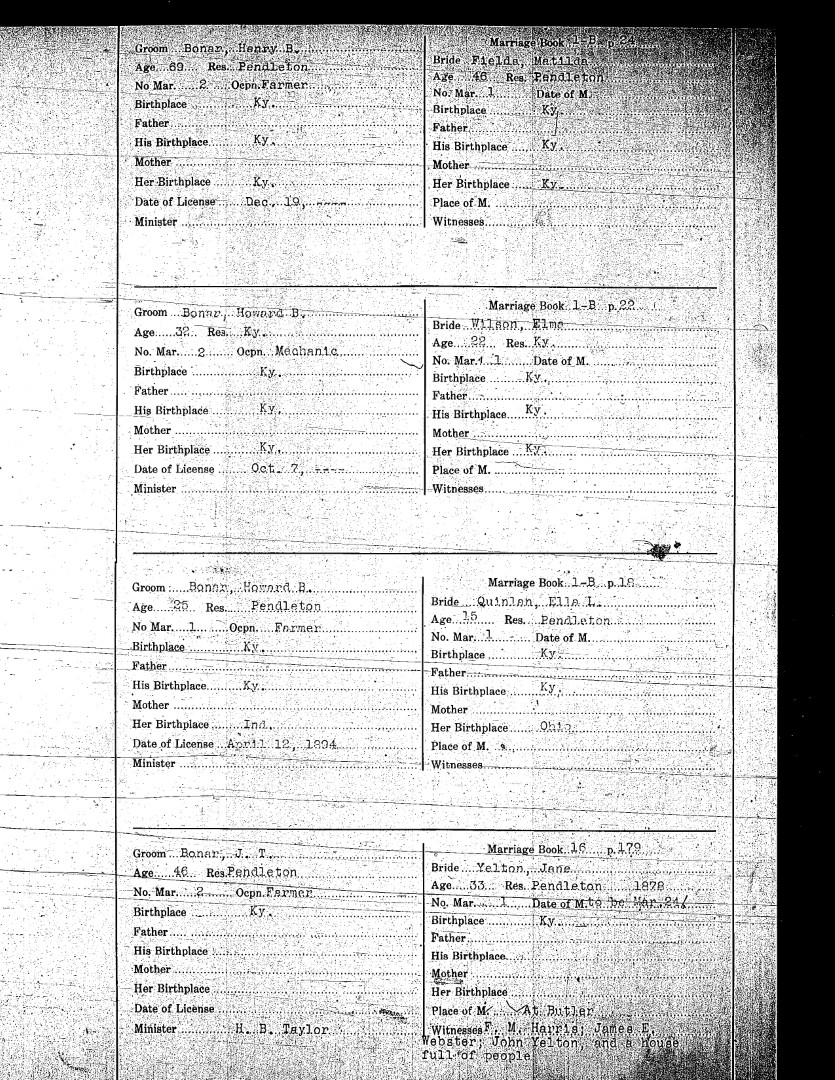 Groom Bonar, Henry B.
Age 69 Res. Pendleton
No Mar. 2 Ocpn. Farmer
Birthplace Ky.
Father
His Birthplace Ky.
Mother
Her Birthplace Ky.
Date of License Dec. 19, ----
Minister
Marriage Book 1-B p. 24
Bride Fields, Matilda
Age 46 Res. Pendleton
No. Mar. 1 Date of M.
Birthplace Ky.
Father
His Birthplace Ky.
Mother
Her Birthplace Ky.
Place of M.
Witnesses
Groom Bonar, Howard B.
Age 32 Res. Ky.
No. Mar. 2 Ocpn. Mechanic
Birthplace Ky.
Father
His Birthplace Ky.
Mother
Her Birthplace Ky.
Date of License Oct. 7, ----
Minister
Marriage Book 1-B p. 22
Bride Wilson, Elma
Age 22 Res. Ky.
No. Mar. 1 Date of M.
Birthplace Ky.
Father
His Birthplace Ky.
Mother
Her Birthplace Ky.
Place of M.
Witnesses
Groom Bonar, Howard B.
Age 25 Res. Pendleton
No Mar. 1 Ocpn. Farmer
Birthplace Ky.
Father
His Birthplace Ky.
Mother
Her Birthplace Ind.
Date of License April 12, 1894
Minister
Marriage Book 1-B p. 18
Bride Quinlan, Ella L.
Age 15 Res. Pendleton
No. Mar. 1 Date of M.
Birthplace Ky.
Father
His Birthplace Ky.
Mother
Her Birthplace Ohio
Place of M.
Witnesses
Groom Bonar, J. T.
Age 46 Res. Pendleton
No. Mar. 2 Ocpn. Farmer
Birthplace Ky.
Father
His Birthplace
Mother
Her Birthplace
Date of License
Minister H. B. Taylor
Marriage Book 16 p. 179
Bride Yelton, Jane
Age 33 Res. Pendleton 1878
No. Mar. 1 Date of M. to be Mar. 24/
Birthplace Ky.
Father
His Birthplace
Mother
Her Birthplace
Place of M. At Butler
Witnesses F. M. Harris; James E.
Webster; John Yelton, and a house
full of people